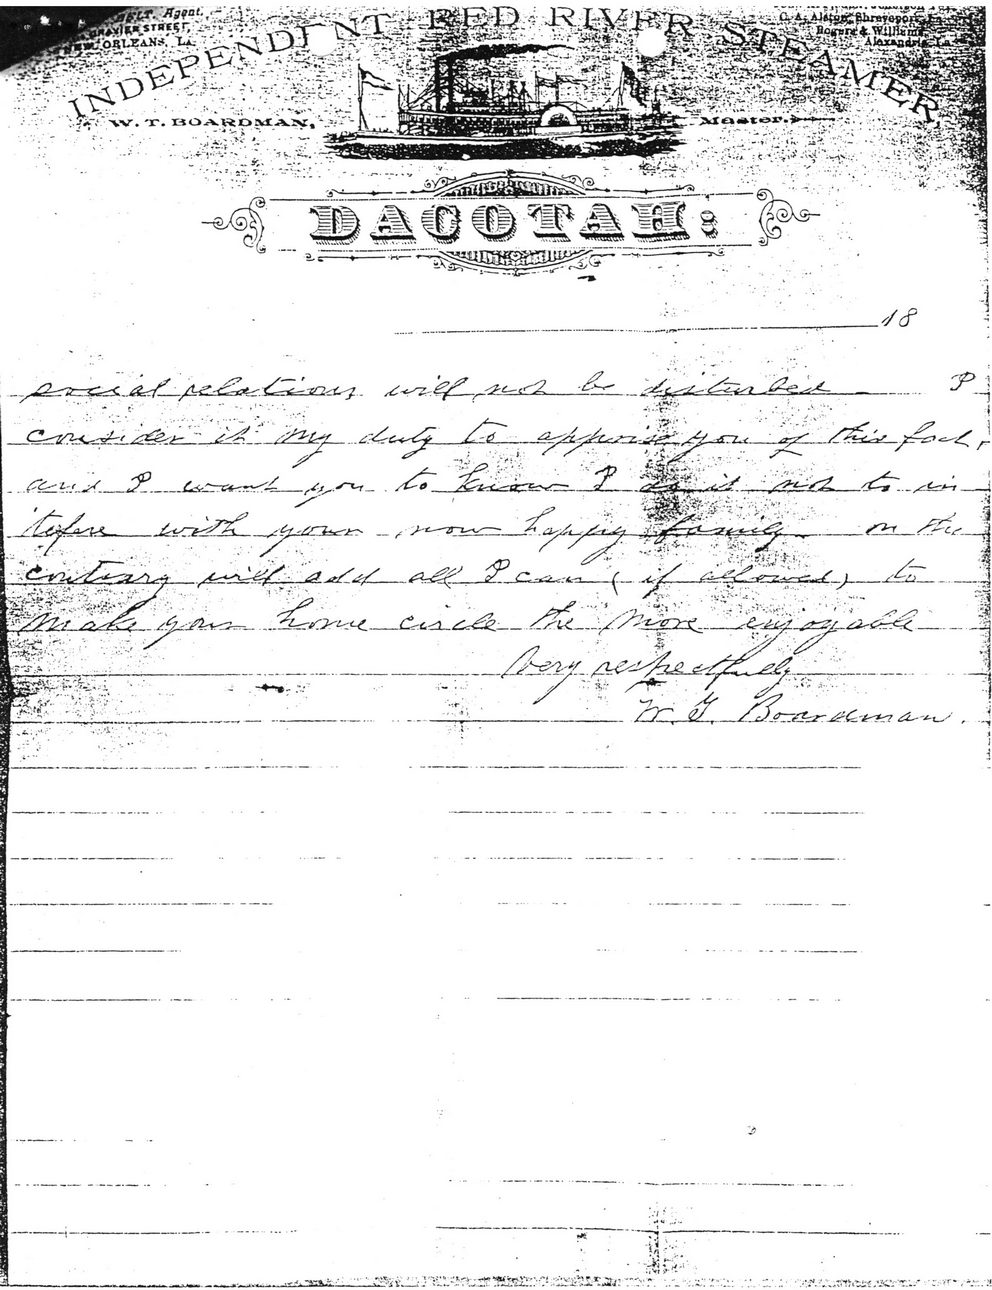 Agent.
GRAVIER STREET,
NEW ORLEANS, LA.
C. A. Alston, Shreveport, La.
Rogers & Williams
Alexandria, La.
INDEPENDENT RED RIVER STEAMER
W. T. BOARDMAN, Master.
DACOTAH:
18
social relations will not be disturbed – I
consider it my duty to apprise you of this fact,
and I want you to know I do it not to in
tefere with your now happy family – on the
contrary will add all I can (if allowed) to
make your home circle the more enjoyable
Very respectfully
W. T. Boardman.